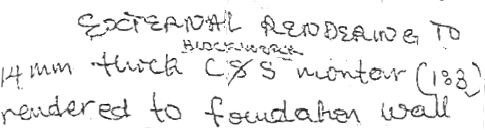 EXTERNAL RENDERING TO
BLOCKWORK
14mm thick C&S montar (1:3)
rendered to foundation wall